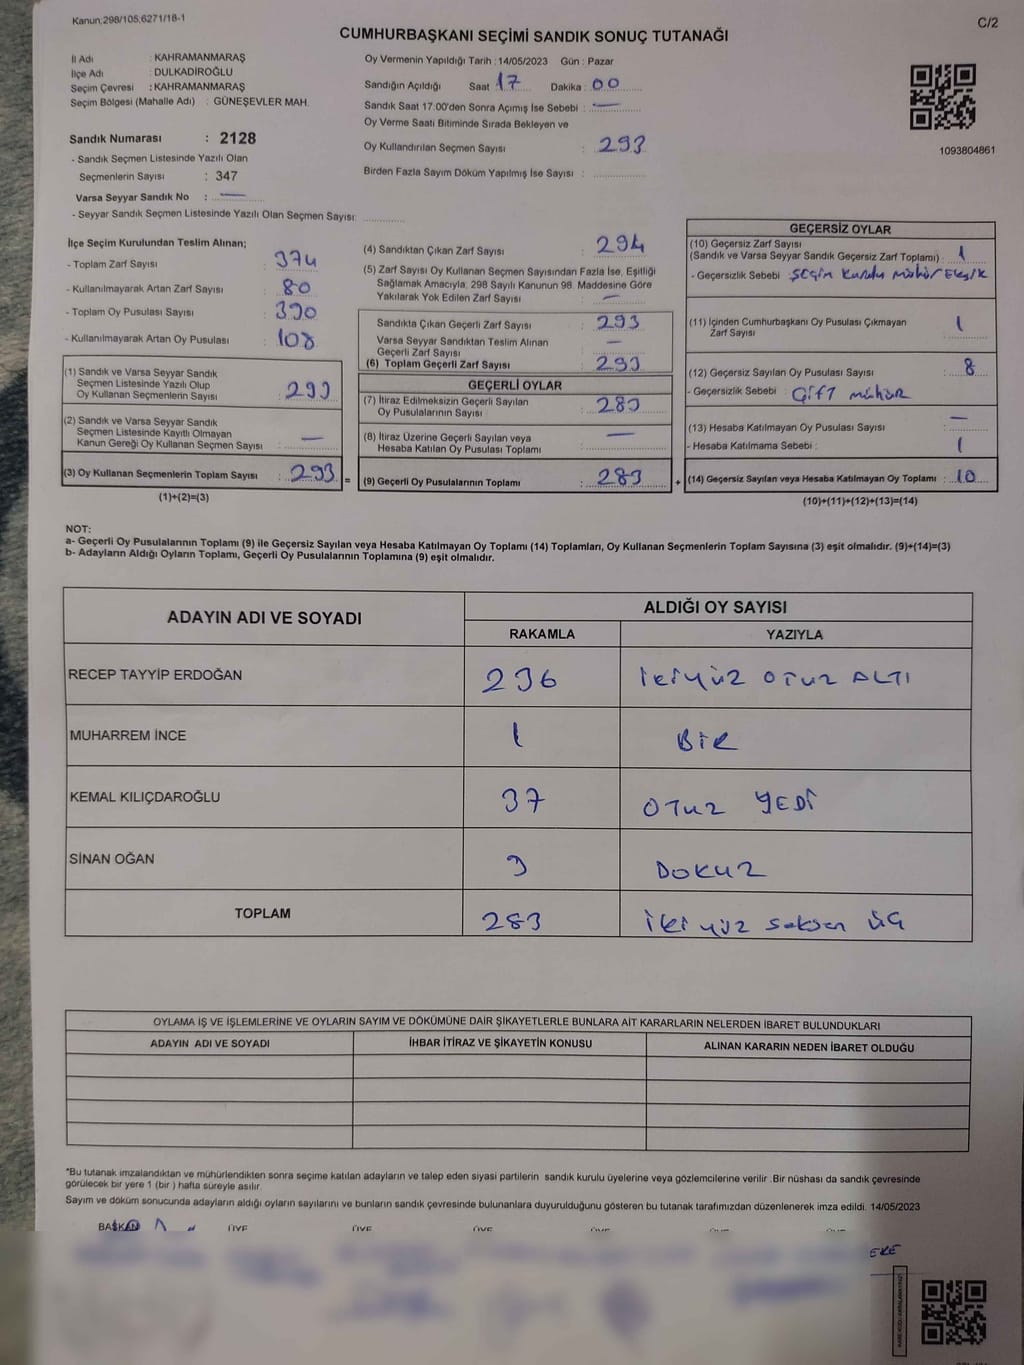 Kanun;298/105;6271/18-1
C/2
CUMHURBAŞKANI SEÇİMİ SANDIK SONUÇ TUTANAĞI
İl Adı : KAHRAMANMARAŞ
İlçe Adı : DULKADİROĞLU
Seçim Çevresi : KAHRAMANMARAŞ
Seçim Bölgesi (Mahalle Adı) : GÜNEŞEVLER MAH.
Sandık Numarası : 2128
- Sandık Seçmen Listesinde Yazılı Olan
Seçmenlerin Sayısı : 347
Varsa Seyyar Sandık No : —
- Seyyar Sandık Seçmen Listesinde Yazılı Olan Seçmen Sayısı:
Oy Vermenin Yapıldığı Tarih : 14/05/2023 Gün : Pazar
Sandığın Açıldığı Saat 17 Dakika : 00
Sandık Saat 17:00'den Sonra Açımış İse Sebebi : —
Oy Verme Saati Bitiminde Sırada Bekleyen ve
Oy Kullandırılan Seçmen Sayısı : 293
Birden Fazla Sayım Döküm Yapılmış İse Sayısı :
1093804861
İlçe Seçim Kurulundan Teslim Alınan;
- Toplam Zarf Sayısı : 374
- Kullanılmayarak Artan Zarf Sayısı : 80
- Toplam Oy Pusulası Sayısı : 390
- Kullanılmayarak Artan Oy Pusulası : 108
(1) Sandık ve Varsa Seyyar Sandık
Seçmen Listesinde Yazılı Olup
Oy Kullanan Seçmenlerin Sayısı : 293
(2) Sandık ve Varsa Seyyar Sandık
Seçmen Listesinde Kayıtlı Olmayan
Kanun Gereği Oy Kullanan Seçmen Sayısı : —
(3) Oy Kullanan Seçmenlerin Toplam Sayısı : 293
(1)+(2)=(3)
(4) Sandıktan Çıkan Zarf Sayısı : 294
(5) Zarf Sayısı Oy Kullanan Seçmen Sayısından Fazla İse, Eşitliği
Sağlamak Amacıyla, 298 Sayılı Kanunun 98. Maddesine Göre
Yakılarak Yok Edilen Zarf Sayısı : —
Sandıkta Çıkan Geçerli Zarf Sayısı : 293
Varsa Seyyar Sandıktan Teslim Alınan
Geçerli Zarf Sayısı : —
(6) Toplam Geçerli Zarf Sayısı : 293
GEÇERLİ OYLAR
(7) İtiraz Edilmeksizin Geçerli Sayılan
Oy Pusulalarının Sayısı : 283
(8) İtiraz Üzerine Geçerli Sayılan veya
Hesaba Katılan Oy Pusulası Toplamı : —
= (9) Geçerli Oy Pusulalarının Toplamı : 283 +
GEÇERSİZ OYLAR
(10) Geçersiz Zarf Sayısı
(Sandık ve Varsa Seyyar Sandık Geçersiz Zarf Toplamı) : 1
- Geçersizlik Sebebi : Seçim Kurulu Mühür Eksik
(11) İçinden Cumhurbaşkanı Oy Pusulası Çıkmayan
Zarf Sayısı : 1
(12) Geçersiz Sayılan Oy Pusulası Sayısı : 8
- Geçersizlik Sebebi : Çift mühür
(13) Hesaba Katılmayan Oy Pusulası Sayısı : —
- Hesaba Katılmama Sebebi : 1
(14) Geçersiz Sayılan veya Hesaba Katılmayan Oy Toplamı : 10
(10)+(11)+(12)+(13)=(14)
NOT:
a- Geçerli Oy Pusulalarının Toplamı (9) ile Geçersiz Sayılan veya Hesaba Katılmayan Oy Toplamı (14) Toplamları, Oy Kullanan Seçmenlerin Toplam Sayısına (3) eşit olmalıdır. (9)+(14)=(3)
b- Adayların Aldığı Oyların Toplamı, Geçerli Oy Pusulalarının Toplamına (9) eşit olmalıdır.
ADAYIN ADI VE SOYADI
ALDIĞI OY SAYISI
RAKAMLA YAZIYLA
RECEP TAYYİP ERDOĞAN 236 İKİYÜZ OTUZ ALTI
MUHARREM İNCE 1 BİR
KEMAL KILIÇDAROĞLU 37 OTUZ YEDİ
SİNAN OĞAN 9 DOKUZ
TOPLAM 283 İKİ yüz seksen üç
OYLAMA İŞ VE İŞLEMLERİNE VE OYLARIN SAYIM VE DÖKÜMÜNE DAİR ŞİKAYETLERLE BUNLARA AİT KARARLARIN NELERDEN İBARET BULUNDUKLARI
ADAYIN ADI VE SOYADI İHBAR İTİRAZ VE ŞİKAYETİN KONUSU ALINAN KARARIN NEDEN İBARET OLDUĞU
*Bu tutanak imzalandıktan ve mühürlendikten sonra seçime katılan adayların ve talep eden siyasi partilerin sandık kurulu üyelerine veya gözlemcilerine verilir. Bir nüshası da sandık çevresinde
görülecek bir yere 1 (bir ) hafta süreyle asılır.
Sayım ve döküm sonucunda adayların aldığı oyların sayılarını ve bunların sandık çevresinde bulunanlara duyurulduğunu gösteren bu tutanak tarafımızdan düzenlenerek imza edildi. 14/05/2023
BAŞKAN ÜYE ÜYE ÜYE